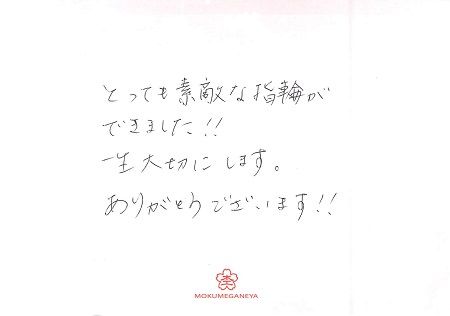 とっても素敵な指輪が
できました!!
一生大切にします。
ありがとうございます!!
MOKUMEGANEYA